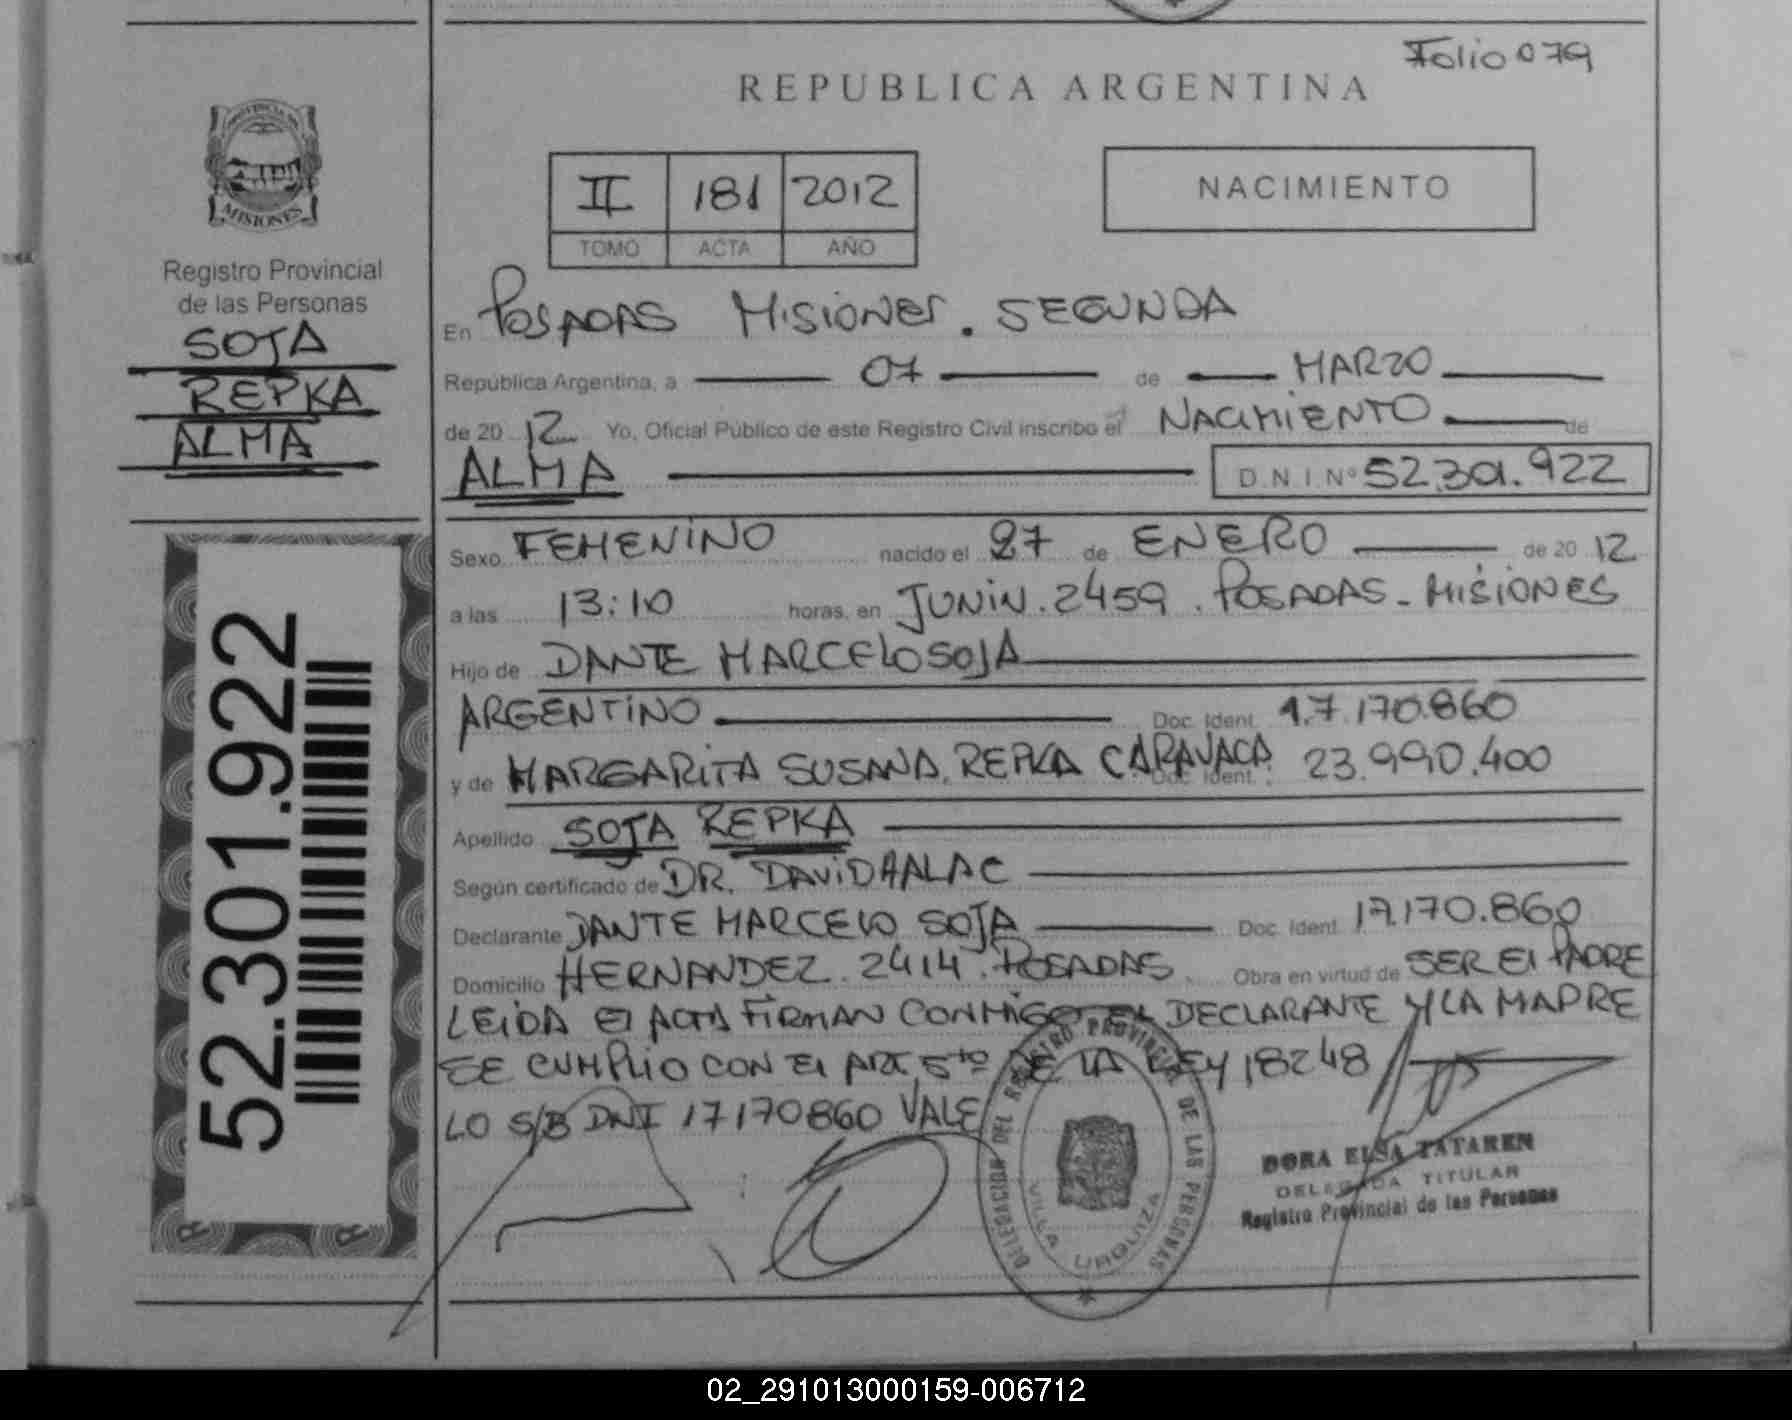 Folio 079
REPUBLICA ARGENTINA
II 181 2012
TOMO ACTA AÑO
NACIMIENTO
PROVINCIA DE
MISIONES
Registro Provincial
de las Personas
SOJA
REPKA
ALMA
52.301.922
En POSADAS MISIONES. SEGUNDA
República Argentina, a 07 de MARZO
de 20 12 Yo, Oficial Público de este Registro Civil inscribo el NACIMIENTO de
ALMA D.N.I.Nº 52.301.922
Sexo FEMENINO nacido el 27 de ENERO de 20 12
a las 13:10 horas, en JUNIN. 2459. POSADAS - MISIONES
Hijo de DANTE MARCELO SOJA
ARGENTINO Doc. Ident. 17.170.860
y de MARGARITA SUSANA REPKA CARAVACA Doc. Ident. 23.990.400
Apellido SOJA REPKA
Según certificado de DR. DAVID
Declarante DANTE MARCELO SOJA Doc. Ident. 17.170.860
Domicilio HERNANDEZ. 2414. POSADAS Obra en virtud de SER El PADRE
LEIDA El ACTA FIRMAN CONMIGO EL DECLARANTE Y LA MADRE
SE CUMPLIO CON El ART. 5to DE LA LEY 18248
LO S/B DNI 17170860 VALE
DELEGACION DEL REGISTRO PROVINCIAL DE LAS PERSONAS
VILLA URQUIZA
DORA ELSA TATAREN
DELEGADA TITULAR
Registro Provincial de las Personas
02_291013000159-006712